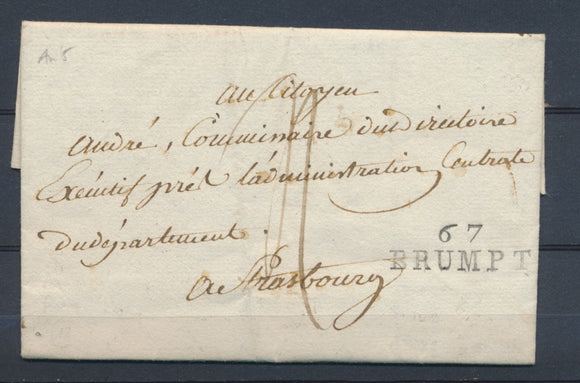 An 5
au Citoyen
andré, Commissaire du directoire
Exécutif près l'administration Centrale
du département.
a Strasbourg
67
BRUMPT